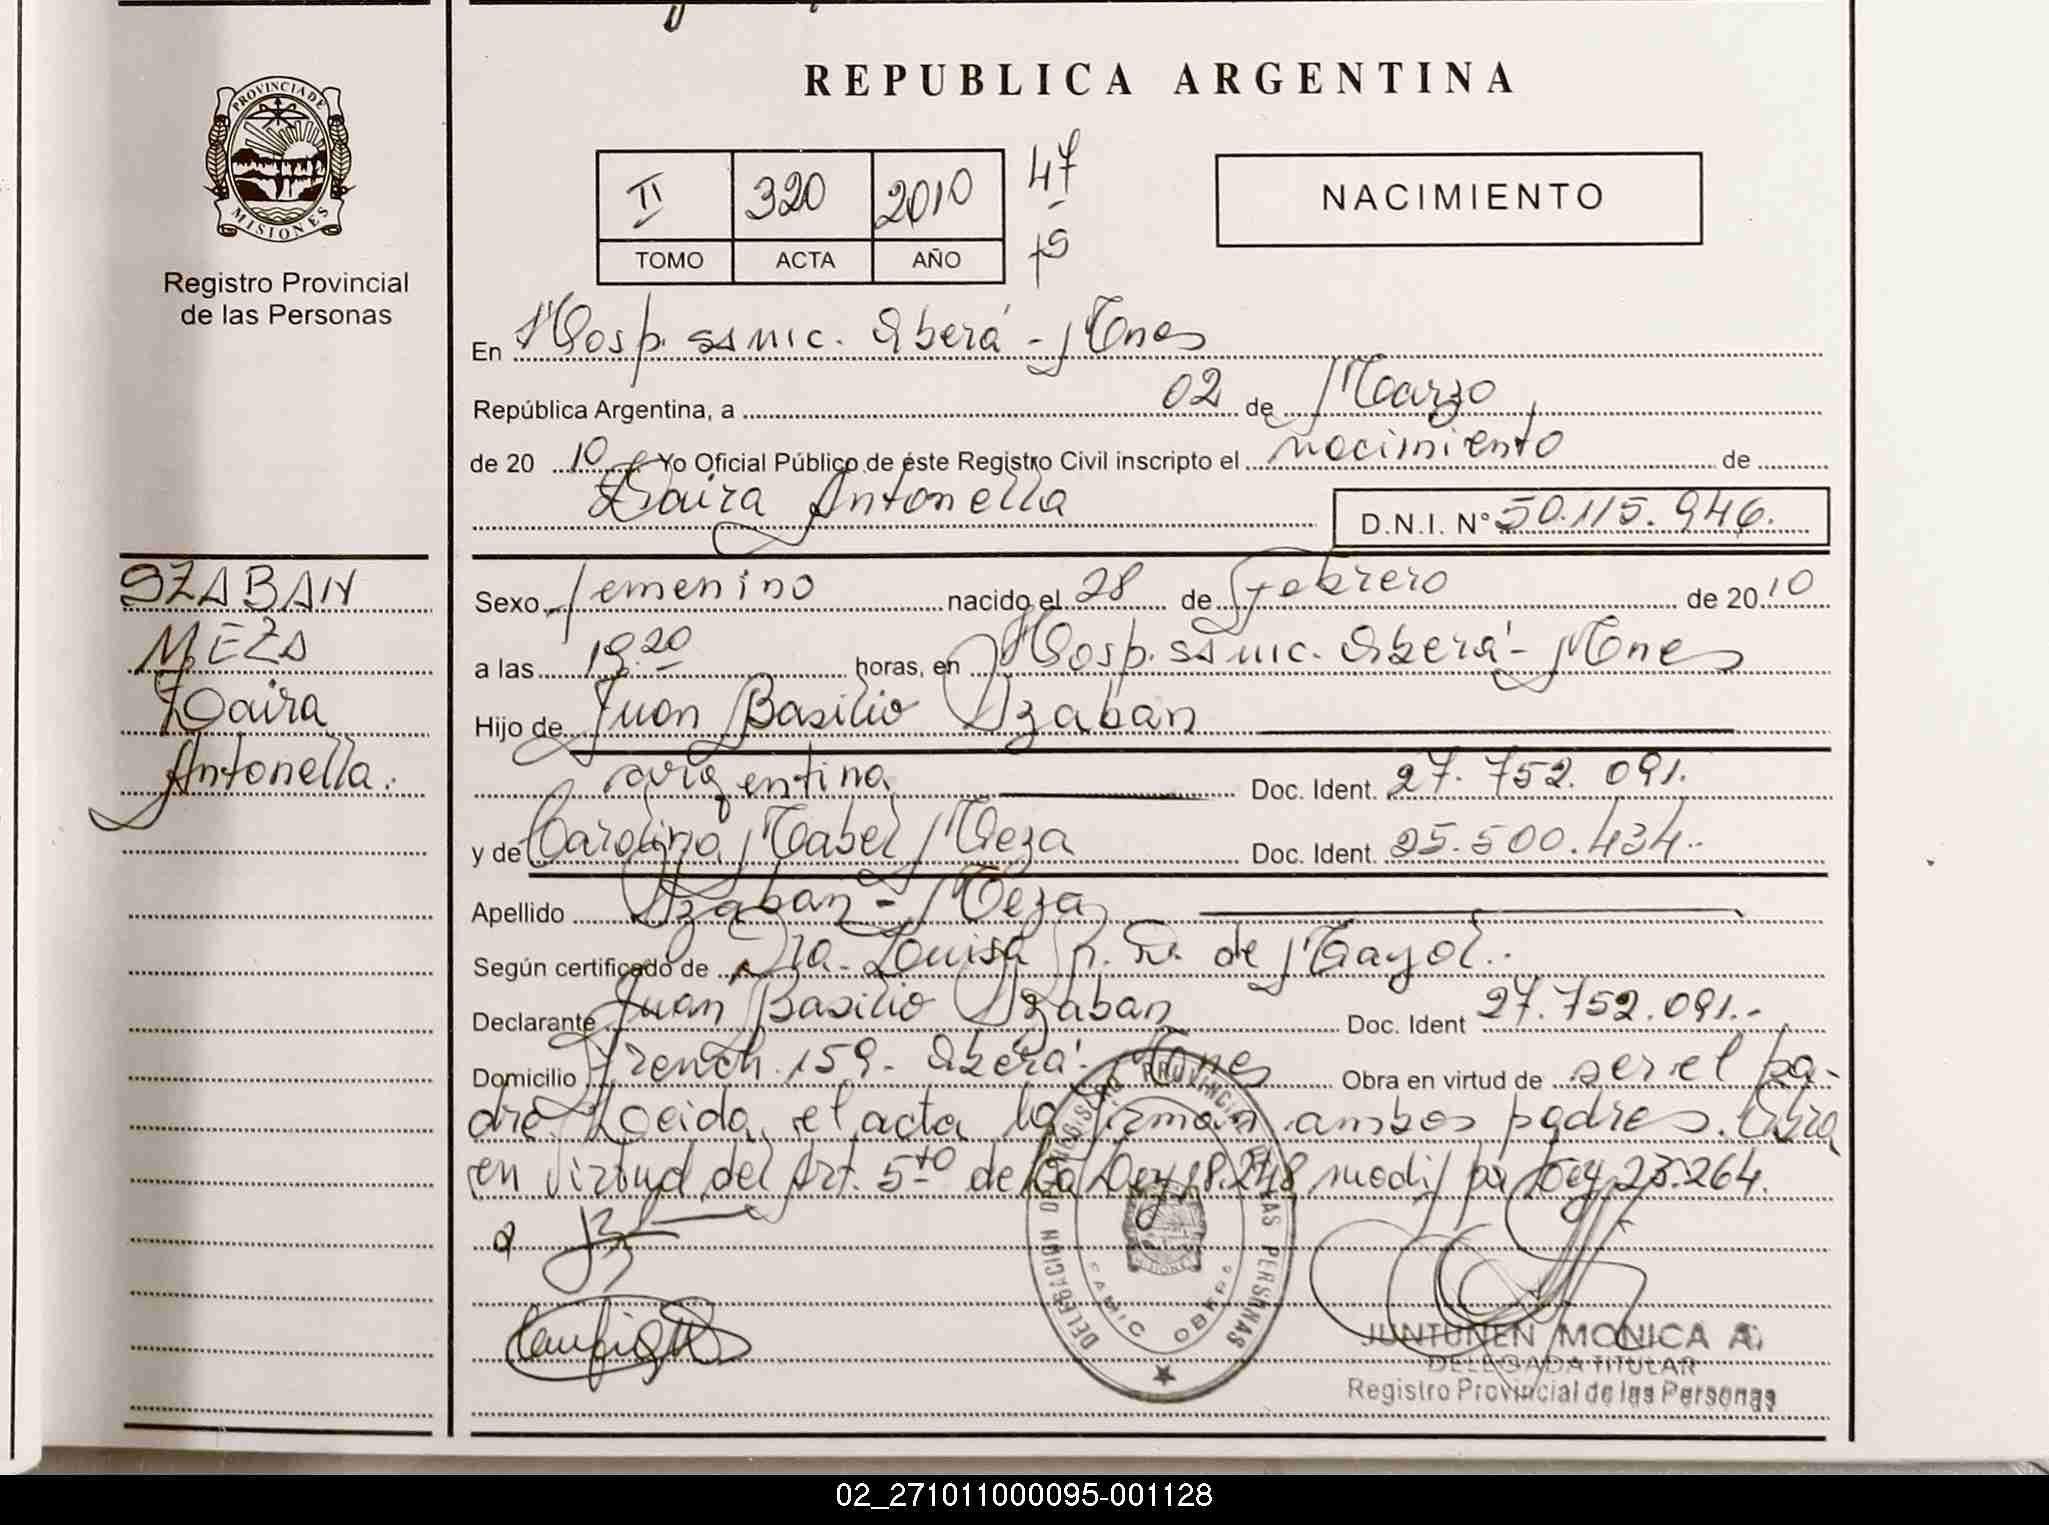 REPUBLICA ARGENTINA
PROVINCIA DE MISIONES
Registro Provincial
de las Personas
II 320 2010 47
TOMO ACTA AÑO
NACIMIENTO
En Hosp. ssmic. Oberá - Mnes
República Argentina, a 02 de Marzo
de 20 10 Yo Oficial Público de éste Registro Civil inscripto el nacimiento de
Zaira Antonella D.N.I. N° 50.115.946.
SZABAN
MEZA
Zaira
Antonella.
Sexo femenino nacido el 28 de Febrero de 20 10
a las 19.20 horas, en Hosp. ssmic. Oberá - Mnes
Hijo de Juan Basilio Szaban
argentina Doc. Ident. 27.752.091.
y de Carolina Mabel Meza Doc. Ident. 25.500.434.
Apellido Szaban - Meza
Según certificado de Dra. Louisa de Mayol.
Declarante Juan Basilio Szaban Doc. Ident 27.752.091.-
Domicilio French 159 - Oberá - Mnes Obra en virtud de ser el pa-
dre. Leida el acta la firman ambos padres. Obra
en virtud del Art. 5to de la Ley 18.248 modif por Ley 23.264.
DELEGACION DEL REGISTRO PROVINCIAL DE LAS PERSONAS
JUNTUNEN MONICA A.
DELEGADA TITULAR
Registro Provincial de las Personas
02_271011000095-001128